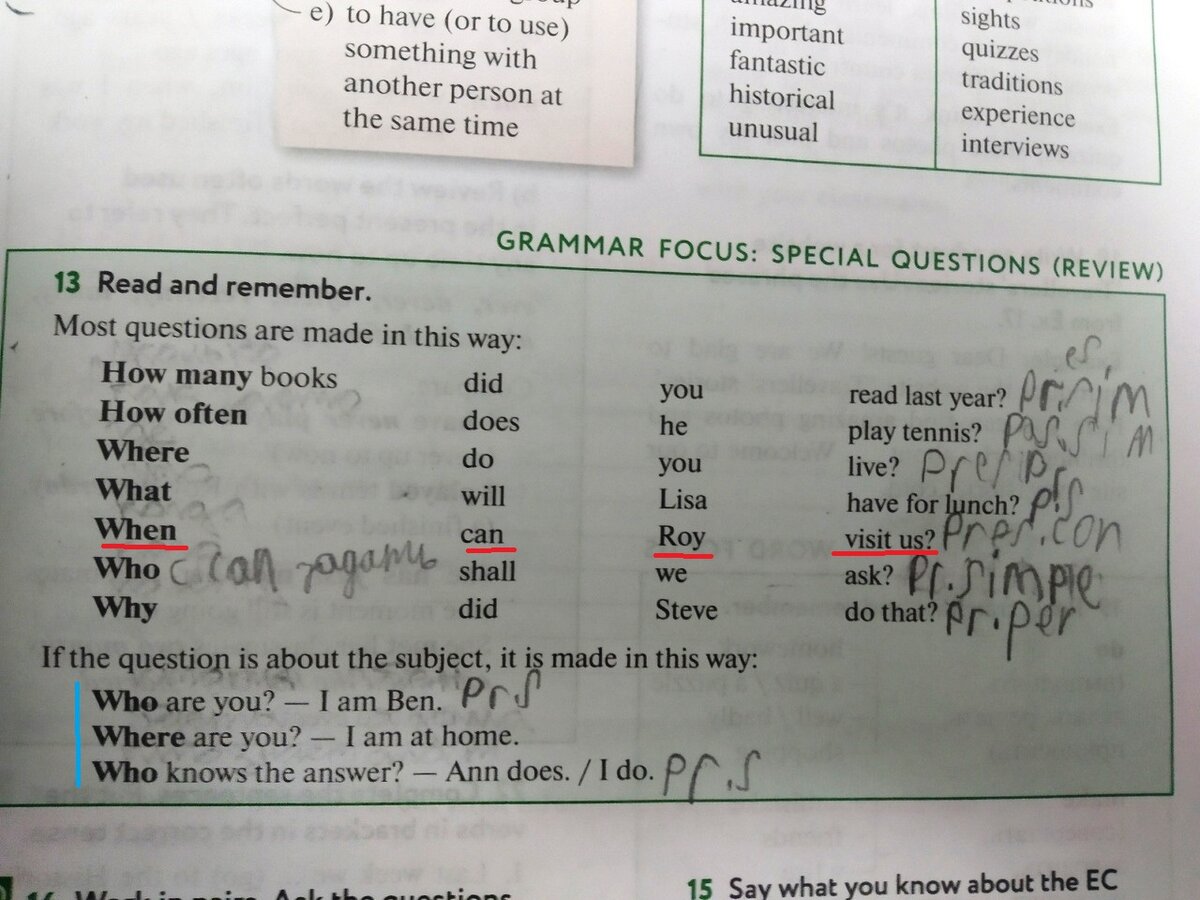 e) to have (or to use)
something with
another person at
the same time
amazing
important
fantastic
historical
unusual
sights
quizzes
traditions
experience
interviews
GRAMMAR FOCUS: SPECIAL QUESTIONS (REVIEW)
13 Read and remember.
Most questions are made in this way:
es
How many books did you read last year? Pr.sim
How often does he play tennis? Pas.sim
Where do you live?
What will Lisa have for lunch?
When can Roy visit us? Pres.con
Who can shall we ask? Pr.simple
Why did Steve do that? Pr.per
If the question is about the subject, it is made in this way:
Who are you? — I am Ben. Pr S
Where are you? — I am at home.
Who knows the answer? — Ann does. / I do. Pr.S
14 Work in pairs. Ask the questions
15 Say what you know about the EC